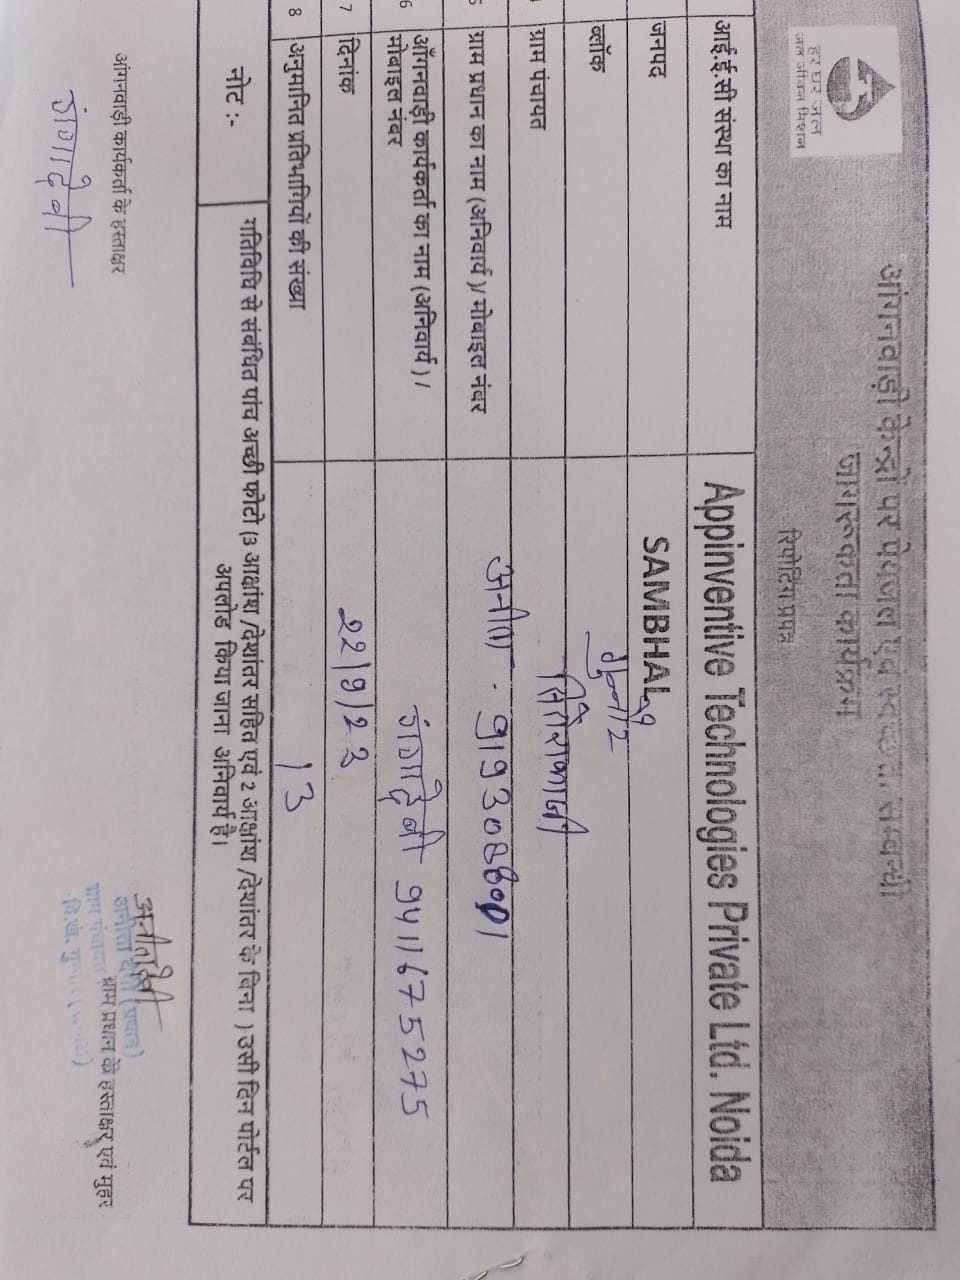 हर घर जल
जल जीवन मिशन
आंगनवाड़ी केन्द्रो पर पेयजल एवं स्वच्छता सम्बन्धी
जागरूकता कार्यक्रम
रिपोर्टिंग प्रपत्र
आई.ई.सी संस्था का नाम Appinventive Technologies Private Ltd. Noida
जनपद SAMBHAL
ब्लॉक
ग्राम पंचायत
5 ग्राम प्रधान का नाम (अनिवार्य)/ मोबाइल नंबर अनीता .
6 ऑंगनवाड़ी कार्यकर्ता का नाम (अनिवार्य) / मोबाइल नंबर गंगादेवी 9411675275
7 दिनांक 22|9|23
8 अनुमानित प्रतिभागियों की संख्या 13
नोट :- गतिविधि से संबंधित पांच अच्छी फोटो (3 आक्षांश /देशांतर सहित एवं 2 आक्षांश /देशांतर के बिना ) उसी दिन पोर्टल पर
अपलोड किया जाना अनिवार्य है।
अनीता देवी
अनीता देवी (प्रधान)
आंगनवाड़ी कार्यकर्ता के हस्ताक्षर ग्राम प्रधान के हस्ताक्षर एवं मुहर
गंगादेवी